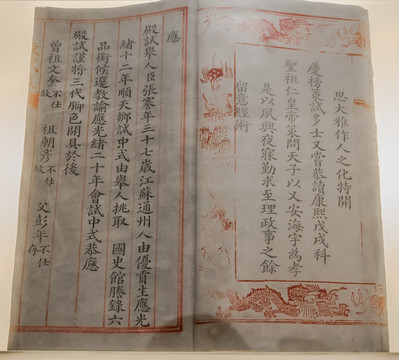 思大雅作人之化特開
慶榜策試多士又嘗恭讀康熙戊戌科
聖祖仁皇帝策問天子以乂安海宇為孝
是以夙興夜寐勤求至理政事之餘
留意經術
應
殿試舉人臣張謇年三十七歲江蘇通州人由優貢生應光
緒十二年順天鄉試中式由舉人挑取 國史館謄錄六
品銜候選教諭應光緒二十年會試中式恭應
殿試謹將三代脚色開具於後
曾祖文奎不仕故 祖朝彥不仕故 父彭年不仕存